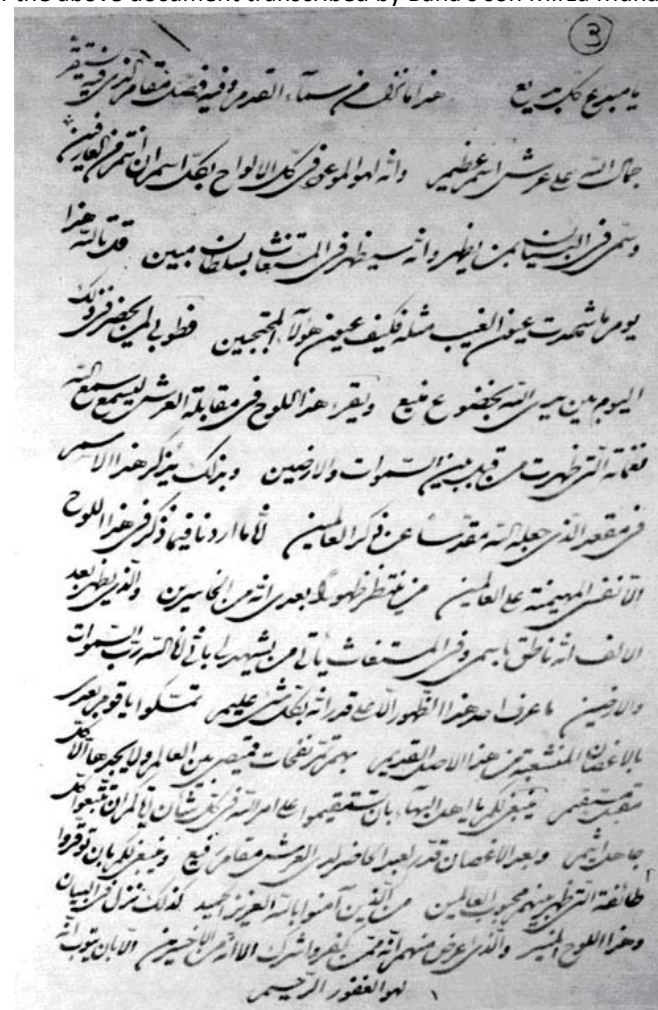 of the above document transcribed by Baha's son Mirza Muha
3
يا مبدع كل بديع هذا ما نزل من سماء القدم وفيه فصل مقام الذي فيه يستقر
جمال الله على عرش اسم عظيم وانه لهو الموعود في كل الالواح بكل اسم ان انتم من العارفين
وسمى في البيان بمن يظهر وانه سيظهر في المستغاث بسلطان مبين قل تالله هذا
يوم ما شهدت عيون الغيب مثله فكيف عيون هؤلاء المحتجبين فطوبى لمن يحضر في ذلك
اليوم بين يدي الله بخضوع منيع ويقرء هذا اللوح في مقابلة العرش ليسمع سمع الله
نغماته التي ظهرت من قبل بين السموات والارضين وبذلك يذكر هذا الاسم
في مقعد الذي جعله الله مقدسا عن ذكر العالمين لانا ما اردنا فيما ذكر في هذا اللوح
الا نفسي المهيمنة على العالمين من ينتظر ظهورا بعدي انه من الخاسرين والذي يظهر بعد
الالف انه ناطق باسمي وفي المستغاث يأتي من يشهد لي باني انا الله رب السموات
والارضين ما عرف احد هذا الظهور الا على قدر انه بكل شئ عليم تمسكوا يا قوم بعدي
بالاغصان المنشعبة من هذا الاصل القديم بهم تهتز نفحات قميصي بين العالم ولا يجدها الا كل
مقبل مستقيم ينبغي لكم يا اهل البهاء بان تستقيموا على امر الله في كل شأن اياكم ان تتبعوا كل
جاهل اثيم وبعد الاغصان قدر لعبد الحاضر لدى العرش مقام رفيع وينبغي لكم بان توقروا
طائفة التي ظهر منهم محبوب العالمين من الذين آمنوا بالله العزيز الحميد كذلك نزل في البيان
وهذا اللوح المنير والذي اعرض منهم انه ممن كفر واشرك الا انه من الاخسرين والا بان يتوب انه
لهو الغفور الرحيم